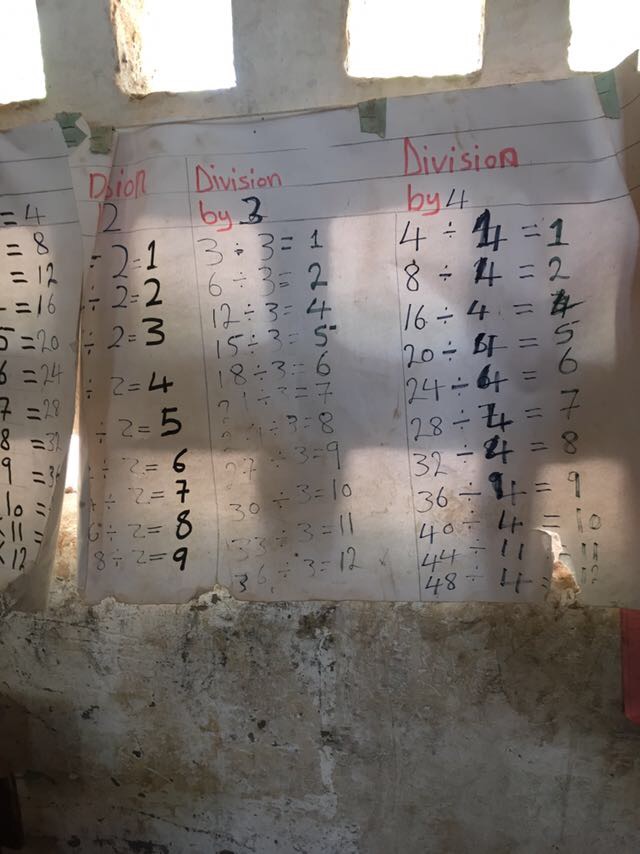 = 4
= 8
= 12
= 16
5 = 20
6 = 24
7 = 28
8 = 32
9 = 36
10 =
×11 =
×12
Dsion
2
÷ 2 = 1
÷ 2 = 2
÷ 2 = 3
÷ 2 = 4
÷ 2 = 5
÷ 2 = 6
÷ 2 = 7
6 ÷ 2 = 8
8 ÷ 2 = 9
Division
by 3
3 ÷ 3 = 1
6 ÷ 3 = 2
12 ÷ 3 = 4
15 ÷ 3 = 5
18 ÷ 3 = 6
21 ÷ 3 = 7
÷ 3 = 8
27 ÷ 3 = 9
30 ÷ 3 = 10
33 ÷ 3 = 11
36 ÷ 3 = 12
Division
by 4
4 ÷ 4 = 1
8 ÷ 4 = 2
16 ÷ 4 = 4
20 ÷ 4 = 5
24 ÷ 4 = 6
28 ÷ 4 = 7
32 ÷ 4 = 8
36 ÷ 4 = 9
40 ÷ 4 = 10
44 ÷ 11 = 11
48 ÷ 4 = 12